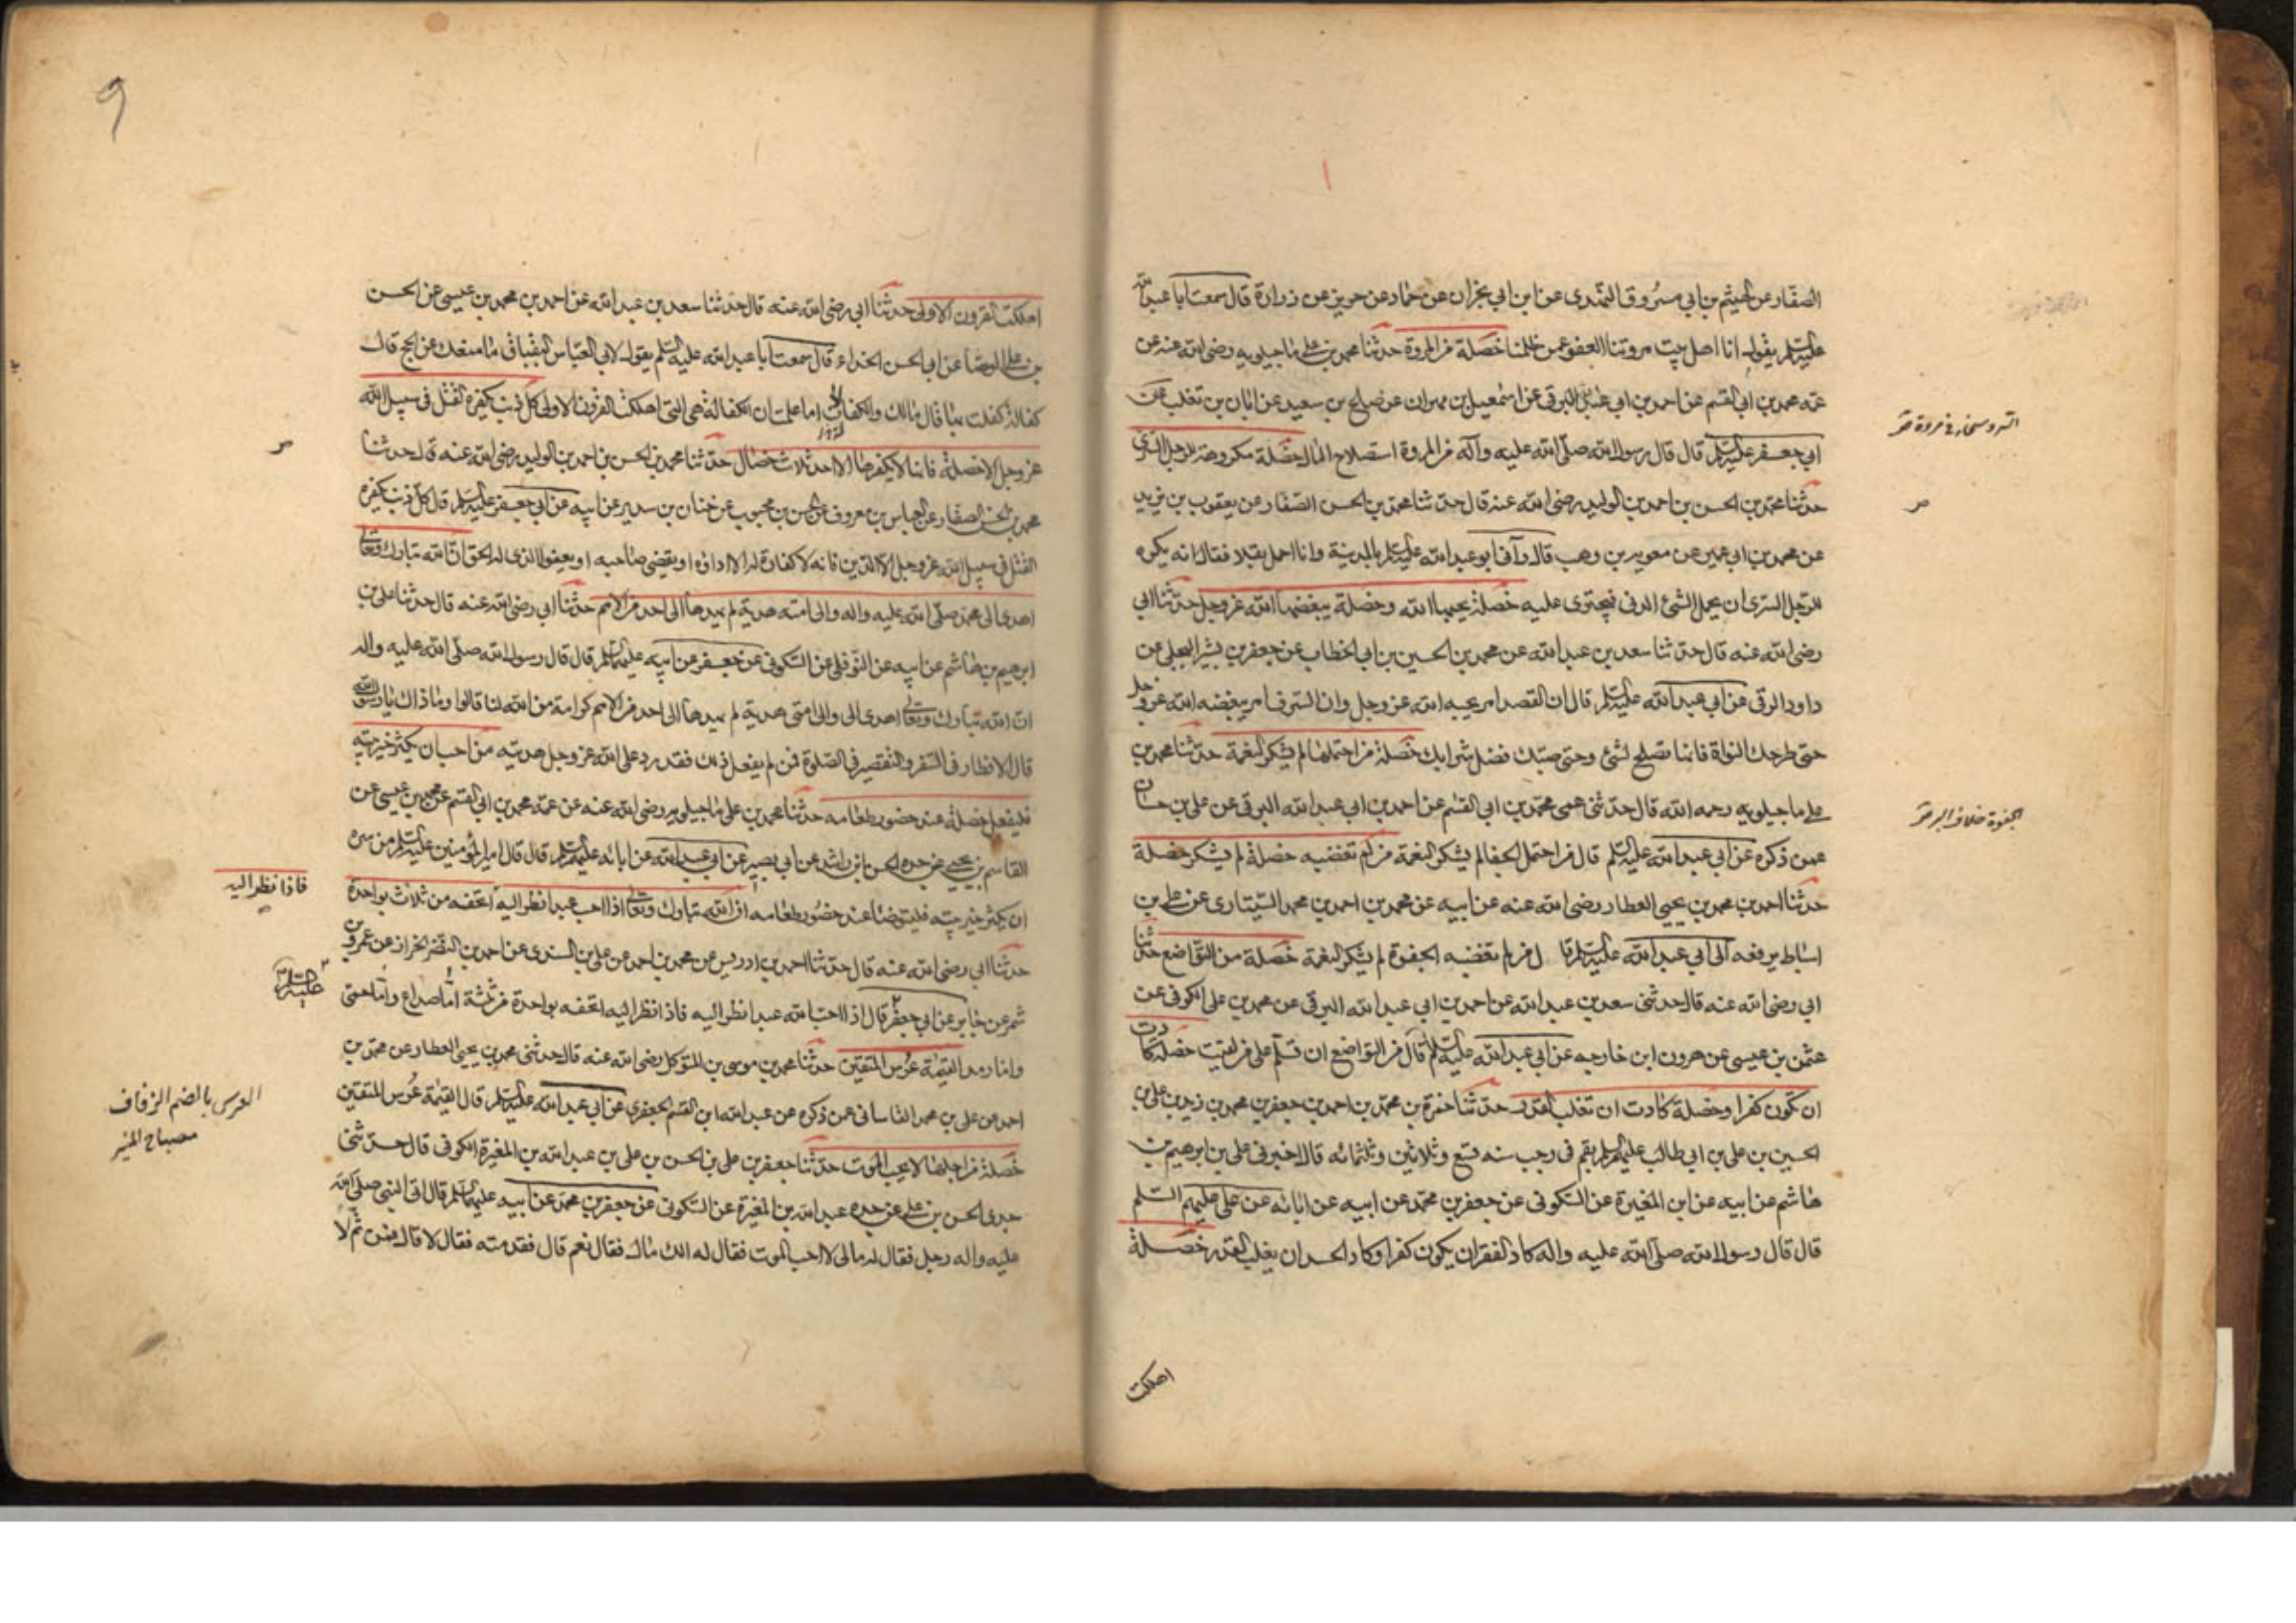 الصفار عن الهيثم بن ابي مسروق النهدى عن ابن ابي نجران عن حماد عن حريز عن زرارة قال سمعت ابا عبد الله
عليه السلم يقول انا اهل بيت مروتنا العفو عمن ظلمنا خصلة من المروة حدثنا محمد بن علي ماجيلويه رضى الله عنه عن
عمه محمد بن ابي القسم عن احمد بن ابي عبد الله البرقى عن اسمعيل بن مهران عن صالح بن سعيد عن ابان بن تغلب عن
ابي جعفر عليه السلم قال قال رسول الله صلى الله عليه وآله من المروة استصلاح المال خصلة مكروهة للرجل السرى
حدثنا محمد بن الحسن بن احمد بن الوليد رضى الله عنه قال حدثنا محمد بن الحسن الصفار عن يعقوب بن يزيد
عن محمد بن ابي عمير عن معوية بن وهب قال رآنى ابو عبد الله عليه السلم بالمدينة وانا احمل بقلا فقال انه يكره
للرجل السرى ان يحمل الشئ الدنى فيجترى عليه خصلة يحبها الله وخصلة يبغضها الله عز وجل حدثنا ابي
رضى الله عنه قال حدثنا سعد بن عبد الله عن محمد بن الحسين بن ابي الخطاب عن جعفر بن بشير البجلى عن
داود الرقى عن ابي عبد الله عليه السلم قال ان القصد امر يحبه الله عز وجل وان السرف امر يبغضه الله عز وجل
حتى طرحك النواة فانها تصلح لشئ وحتى صبك فضل شرابك خصلة من احتملها لم يشكر النعمة حدثنا محمد بن
علي ماجيلويه رحمه الله قال حدثنى عمى محمد بن ابي القسم عن احمد بن ابي عبد الله البرقى عن على بن حسان
عمن ذكره عن ابي عبد الله عليه السلم قال من احتمل الجفا لم يشكر النعمة من لم تغضبه خصلة لم يشكر خصلة
حدثنا احمد بن محمد بن يحيى العطار رضى الله عنه عن ابيه عن محمد بن احمد بن محمد السيارى عن على بن
اسباط يرفعه الى ابي عبد الله عليه السلم قا ل من لم تغضبه الجفوة لم يشكر النعمة خصلة من التواضع حدثنا
ابي رضى الله عنه قال حدثنى سعد بن عبد الله عن احمد بن ابي عبد الله البرقى عن محمد بن على الكوفى عن
عثمن بن عيسى عن هرون ابن خارجه عن ابي عبد الله عليه السلم قال من التواضع ان تسلم على من لقيت خصلة كادت
ان تكون كفرا وخصلة كادت ان تغلب القدر حدثنا حمزة بن محمد بن احمد بن جعفر بن محمد بن زيد بن على بن
الحسين بن على بن ابي طالب عليهم السلم بقم فى رجب سنه تسع وثلاثين وثلثمائه قال اخبرنى على بن ابرهيم بن
هاشم عن ابيه عن ابن المغيرة عن السكونى عن جعفر بن محمد عن ابيه عن ابائه عن على عليهم السلم
قال قال رسول الله صلى الله عليه واله كاد الفقر ان يكون كفرا وكاد الحسد ان يغلب القدر خصلة
اهلكت
السرو سخاء فى مروة
الجفوة خلاف البر
اهلكت القرون الاولى حدثنا ابي رضى الله عنه قال حدثنا سعد بن عبد الله عن احمد بن محمد بن عيسى عن الحسن
بن على الوشا عن ابي الحسن الحذاء قال سمعت ابا عبد الله عليه السلم يقول لابي العباس البقباق ما منعك عن الحج قال
كفالة كفلت بها قال مالك والكفالات اما علمت ان الكفالة هى التى اهلكت القرون الاولى كل ذنب يكفره القتل فى سبيل الله
عز وجل الا خصلة فانها لا يكفرها الا احد ثلاث خصال حدثنا محمد بن الحسن بن احمد بن الوليد رضى الله عنه قال حدثنا
محمد بن الحسن الصفار عن العباس بن معروف عن الحسن بن محبوب عن حنان بن سدير عن ابيه عن ابي جعفر عليه السلم قال كل ذنب يكفره
القتل فى سبيل الله عز وجل الا الدين فانه لا كفارة له الا اداؤه او يقضى صاحبه او يعفو الذى له الحق ان الله تبارك وتعالى
اهدى الى محمد صلى الله عليه واله والى امته هدية لم يهدها الى احد من الامم حدثنا ابي رضى الله عنه قال حدثنا على بن
ابرهيم بن هاشم عن ابيه عن النوفلى عن السكونى عن جعفر عن ابيه عليهما السلم قال قال رسول الله صلى الله عليه واله
ان الله تبارك وتعالى اهدى الى والى امتى هدية لم يهدها الى احد من الامم كرامة من الله لنا قالوا وما ذاك يا رسول الله
قال الافطار فى السفر والتقصير فى الصلوة فمن لم يفعل ذلك فقد رد على الله عز وجل هديته من احب ان يكثر خير بيته
فليفعل خصلة عند حضور طعامه حدثنا محمد بن على ماجيلويه رضى الله عنه عن عمه محمد بن ابي القسم عن محمد بن عيسى عن
القاسم بن يحيى عن جده الحسن بن راشد عن ابي بصير عن ابي عبد الله عن ابائه عليهم السلم قال قال امير المؤمنين عليه السلم من سره
ان يكثر خير بيته فليتوضا عند حضور طعامه ان الله تبارك وتعالى اذا احب عبدا نظر اليه اتحفه من ثلاث بواحدة
حدثنا ابي رضى الله عنه قال حدثنا احمد بن ادريس عن محمد بن احمد عن على بن السندى عن احمد بن النضر الخراز عن عمرو بن
شمر عن جابر عن ابي جعفر قال اذا احب الله عبدا نظر اليه فاذا نظر اليه اتحفه بواحدة من ثلثة اما صداع واما حمى
واما رمد القيمة عرس المتقين حدثنا محمد بن موسى بن المتوكل رضى الله عنه قال حدثنى محمد بن يحيى العطار عن محمد بن
احمد عن على بن محمد القاسانى عمن ذكره عن عبد الله ابن القسم الجعفرى عن ابي عبد الله عليه السلم قال القيمة عرس المتقين
خصلة من اجلها لا يحب الموت حدثنا جعفر بن على بن الحسن بن على بن عبد الله بن المغيرة الكوفى قال حدثنى
جدى الحسن بن على عن جده عبد الله بن المغيرة عن السكونى عن جعفر بن محمد عن ابيه عليهما السلم قال اتى النبى صلى الله
عليه واله رجل فقال له مالى لا احب الموت فقال له الك مال فقال نعم قال فقدمته فقال لا قال فمن ثم لا
فاذا نظر اليه
عليه السلم
العرس بالضم الزفاف
مصباح المنير